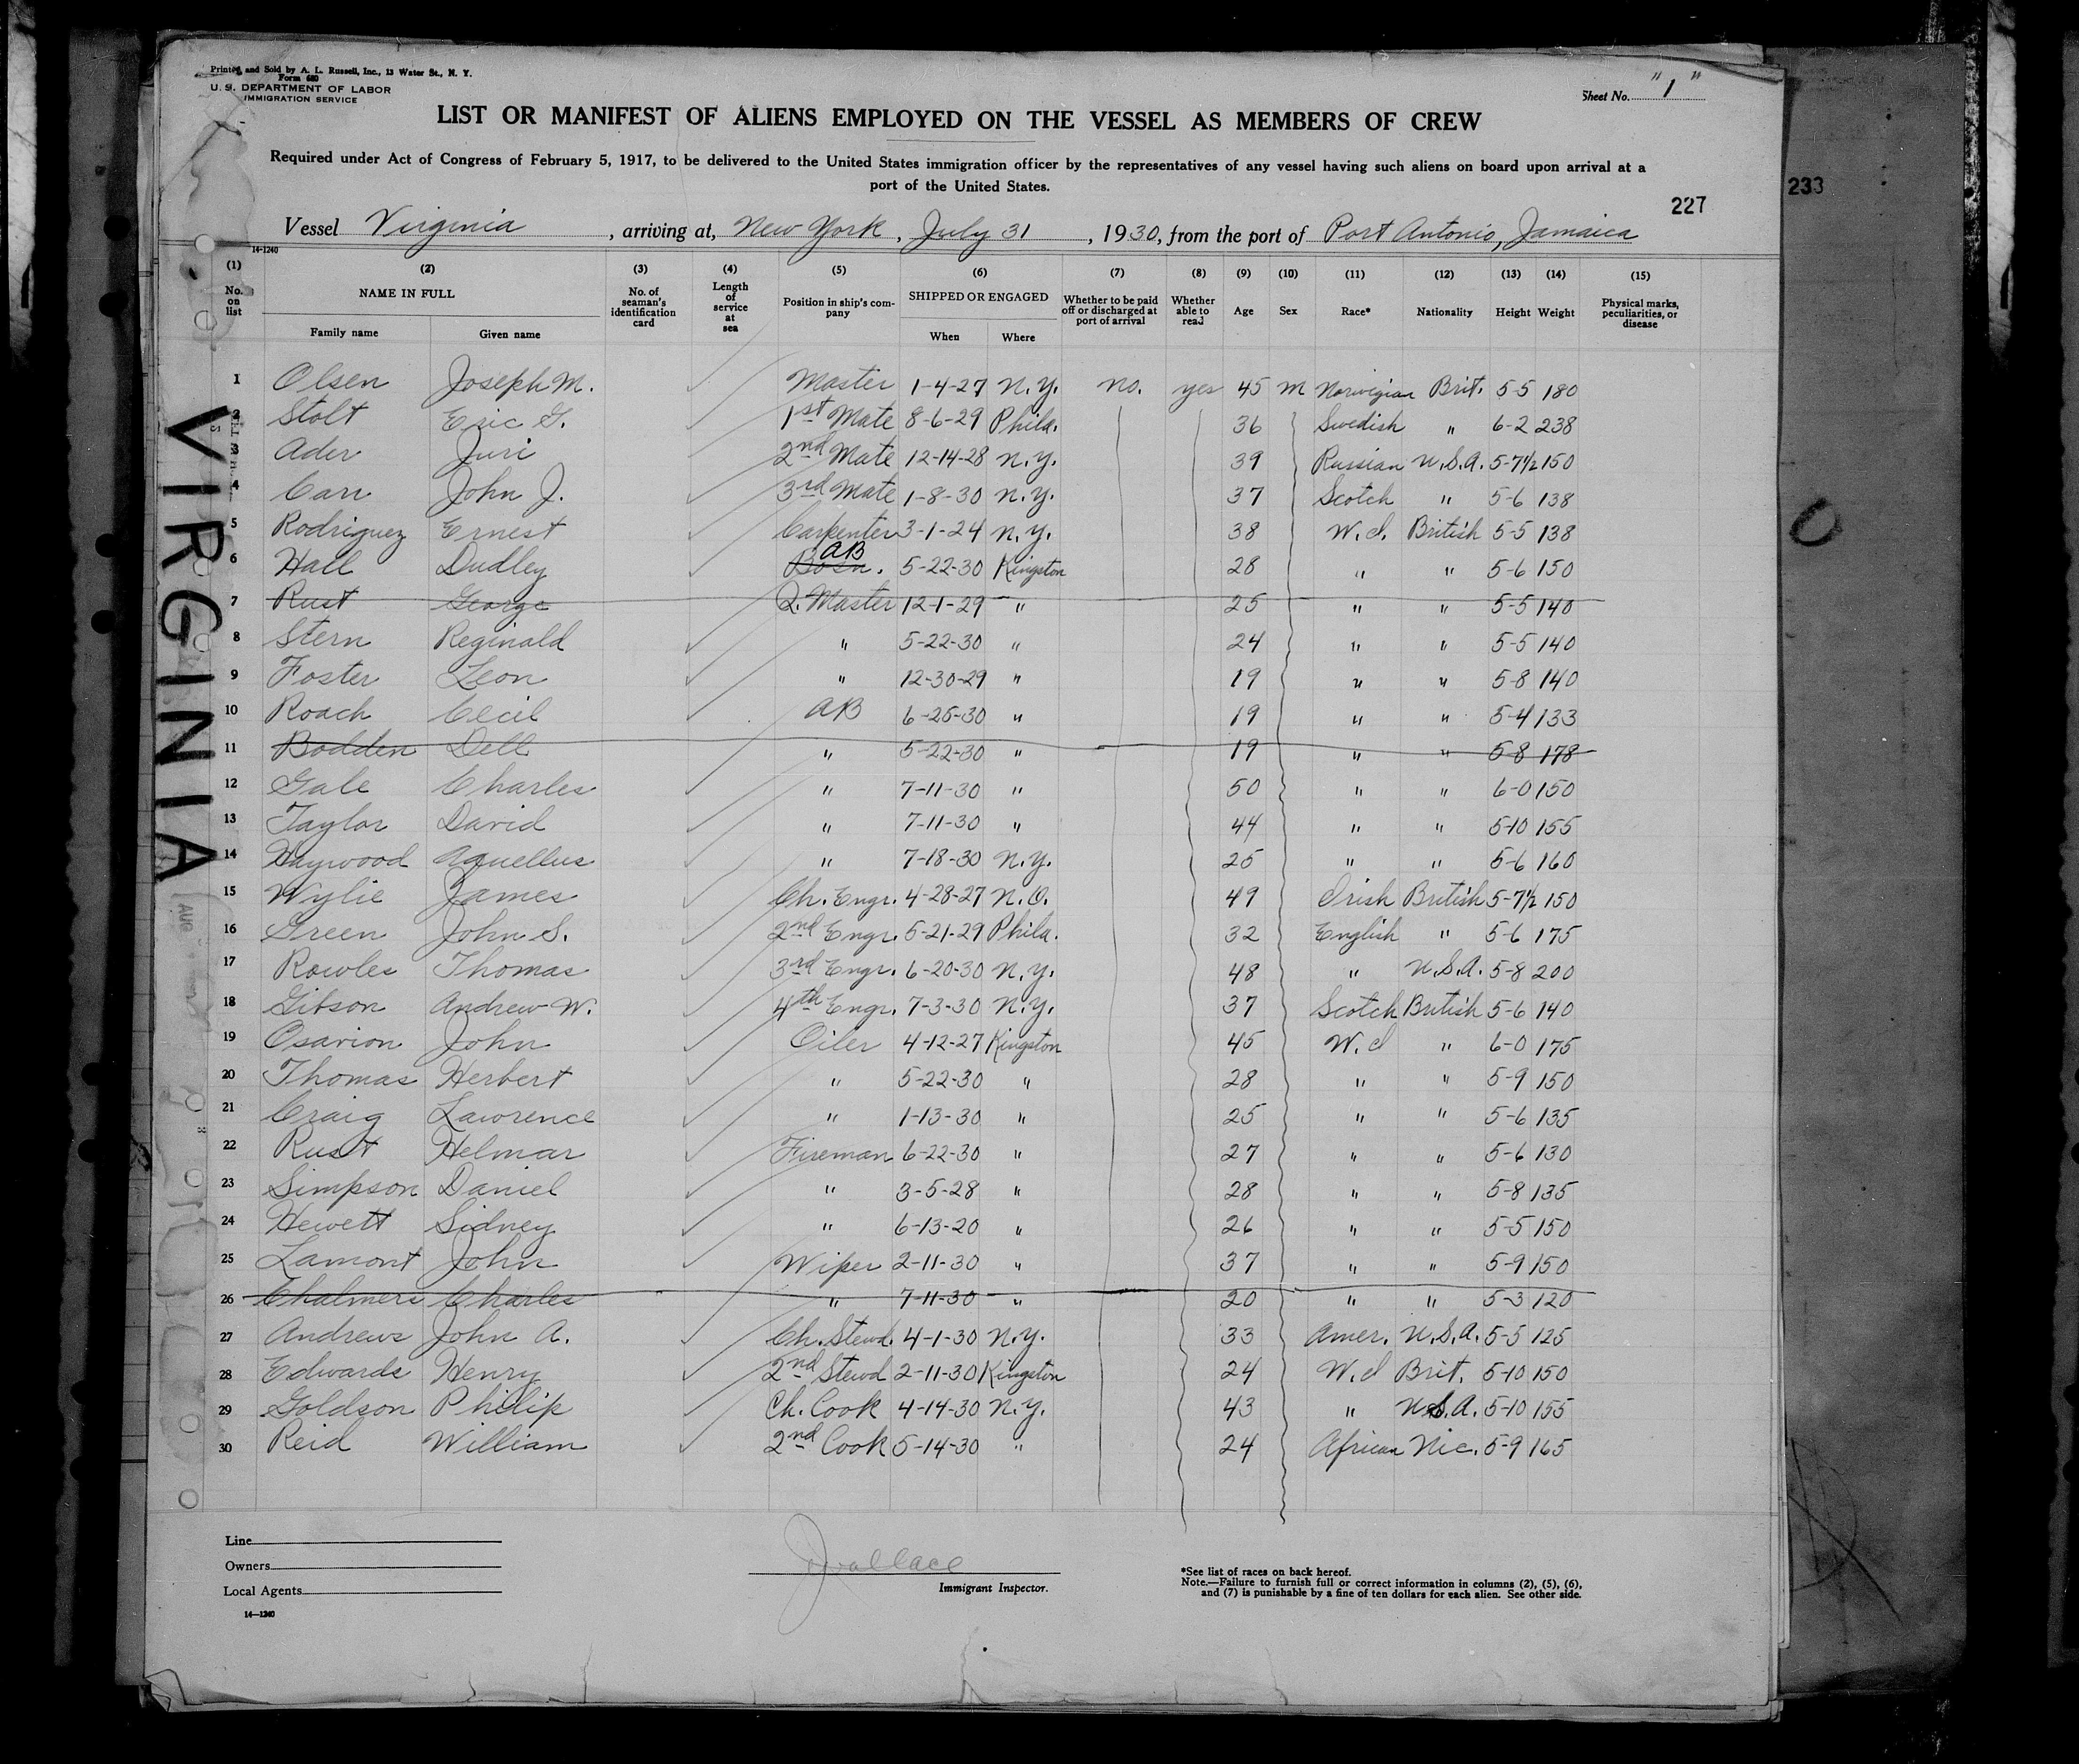 Printed and Sold by A. L. Russell, Inc., 13 Water St., N. Y.
Form 680
U. S. DEPARTMENT OF LABOR
IMMIGRATION SERVICE
Sheet No. "1"
LIST OR MANIFEST OF ALIENS EMPLOYED ON THE VESSEL AS MEMBERS OF CREW
Required under Act of Congress of February 5, 1917, to be delivered to the United States immigration officer by the representatives of any vessel having such aliens on board upon arrival at a
port of the United States.
227
233
Vessel Virginia, arriving at, New York, July 31, 1930, from the port of Port Antonio, Jamaica
14-1240
(1) (2) (3) (4) (5) (6) (7) (8) (9) (10) (11) (12) (13) (14) (15)
No. on list NAME IN FULL No. of seaman's identification card Length of service at sea Position in ship's company SHIPPED OR ENGAGED Whether to be paid off or discharged at port of arrival Whether able to read Age Sex Race* Nationality Height Weight Physical marks, peculiarities, or disease
Family name Given name When Where
1 Olsen Joseph M. Master 1-4-27 N.Y. no. yes 45 m Norwegian Brit. 5-5 180
2 Stolt Eric G. 1st Mate 8-6-29 Phila. 36 Swedish " 6-2 238
3 Ader Juri 2nd Mate 12-14-28 N.Y. 39 Russian U.S.A. 5-7½ 150
4 Carr John J. 3rd Mate 1-8-30 N.Y. 37 Scotch " 5-6 138
5 Rodriguez Ernest Carpenter 3-1-24 N.Y. 38 W.I. British 5-5 138
6 Hall Dudley Bosn. AB 5-22-30 Kingston 28 " " 5-6 150
7 Rust George Q. Master 12-1-29 " 25 " " 5-5 140
8 Stern Reginald " 5-22-30 " 24 " " 5-5 140
9 Foster Leon " 12-30-29 " 19 " " 5-8 140
10 Roach Cecil AB 6-25-30 " 19 " " 5-4 133
11 Bodden Dell " 5-22-30 " 19 " " 5-8 178
12 Gale Charles " 7-11-30 " 50 " " 6-0 150
13 Taylor David " 7-11-30 " 44 " " 5-10 155
14 Haywood Aquellus " 7-18-30 N.Y. 25 " " 5-6 160
15 Wylie James Ch. Engr. 4-28-27 N.O. 49 Irish British 5-7½ 150
16 Green John S. 2nd Engr. 5-21-29 Phila. 32 English " 5-6 175
17 Rowles Thomas 3rd Engr. 6-20-30 N.Y. 48 " U.S.A. 5-8 200
18 Gibson Andrew W. 4th Engr. 7-3-30 N.Y. 37 Scotch British 5-6 140
19 Osarion John Oiler 4-12-27 Kingston 45 W.I " 6-0 175
20 Thomas Herbert " 5-22-30 " 28 " " 5-9 150
21 Craig Lawrence " 1-13-30 " 25 " " 5-6 135
22 Rust Helmar Fireman 6-22-30 " 27 " " 5-6 130
23 Simpson Daniel " 3-5-28 " 28 " " 5-8 135
24 Hewett Sidney " 6-13-20 " 26 " " 5-5 150
25 Lamont John Wiper 2-11-30 " 37 " " 5-9 150
26 Chalmers Charles " 7-11-30 " 20 " " 5-3 120
27 Andrews John A. Ch. Stewd. 4-1-30 N.Y. 33 Amer. U.S.A. 5-5 125
28 Edwards Henry 2nd Stewd 2-11-30 Kingston 24 W.I Brit. 5-10 150
29 Goldson Philip Ch. Cook 4-14-30 N.Y. 43 " U.S.A. 5-10 155
30 Reid William 2nd Cook 5-14-30 " 24 African Nic. 5-9 165
VIRGINIA
Line
Owners
Local Agents
14—1240
Wallace
Immigrant Inspector.
*See list of races on back hereof.
Note.—Failure to furnish full or correct information in columns (2), (5), (6),
and (7) is punishable by a fine of ten dollars for each alien. See other side.